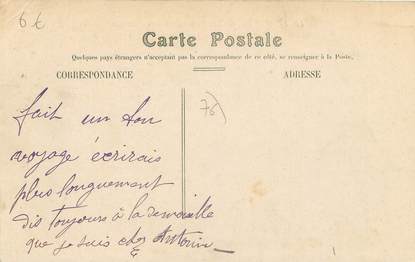 6€
Carte Postale
Quelques pays étrangers n'acceptant pas la correspondance de ce côté, se renseigner à la Poste.
CORRESPONDANCE
ADRESSE
76)
fait un bon
voyage écrirais
plus longuement
dis toujours à la
que je suis chez Antonin